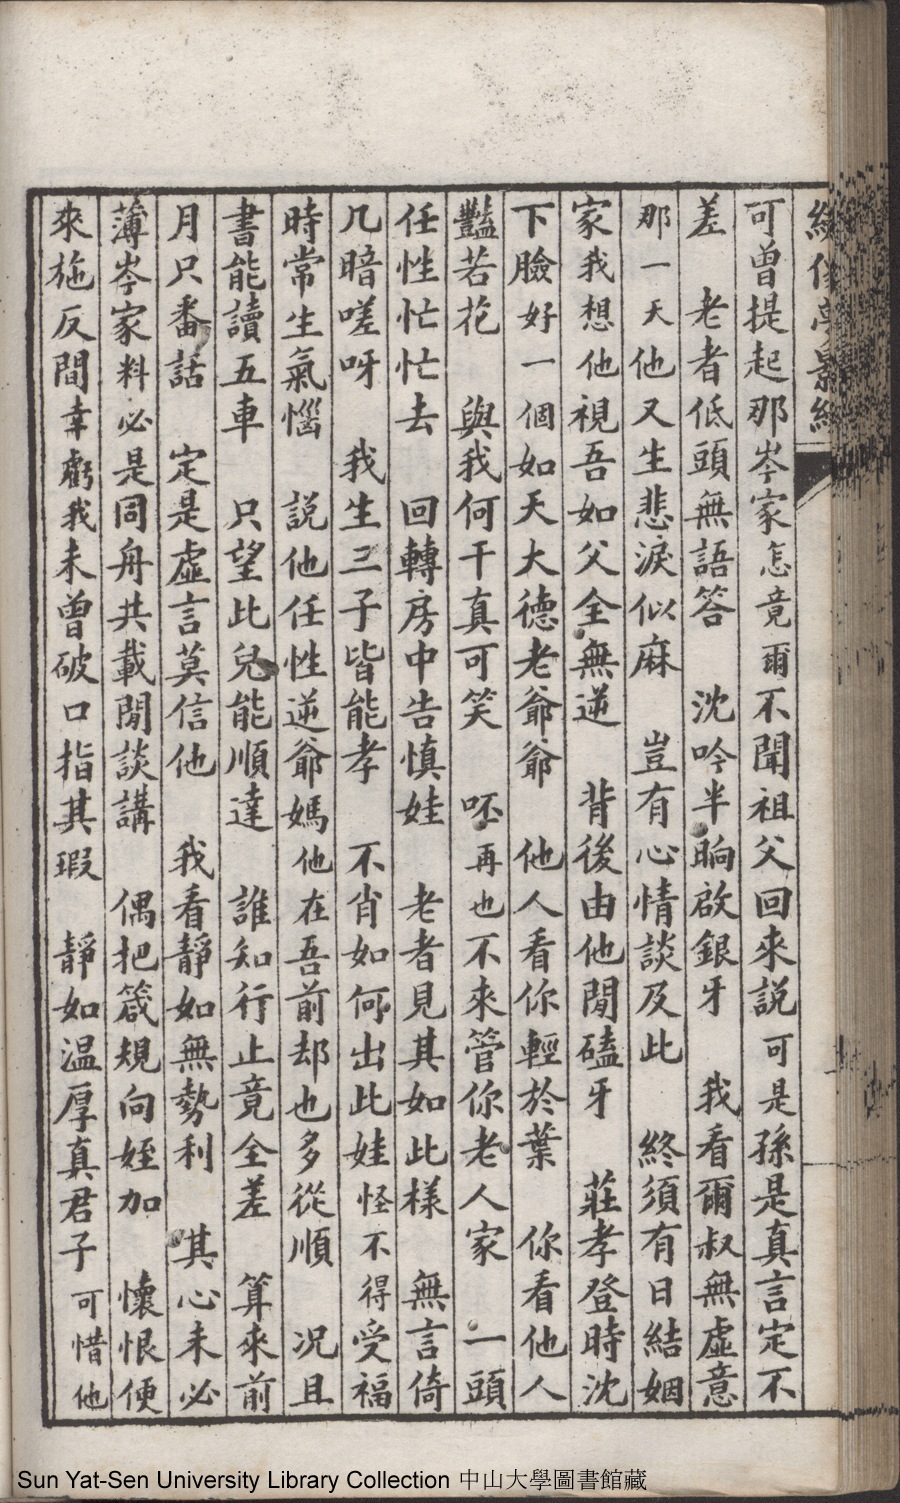 可曾提起那岑家怎竟爾不聞祖父回來説可是孫是真言定不
差　老者低頭無語答　沈吟半晌啟銀牙　我看爾叔無虛意
那一天他又生悲淚似麻　豈有心情談及此　終須有日結姻
家我想他視吾如父全無逆　背後由他閒磕牙　莊孝登時沈
下臉好一個如天大德老爺爺　他人看你輕於葉　你看他人
豔若花　與我何干真可笑　呸再也不來管你老人家　一頭
任性忙忙去　回轉房中告慎娃　老者見其如此樣　無言倚
几暗嗟呀　我生三子皆能孝　不肖如何出此娃怪不得受福
時常生氣惱　説他任性逆爺媽他在吾前却也多從順　况且
書能讀五車　只望此兒能順達　誰知行止竟全差　算來前
月只番話　定是虛言莫信他　我看靜如無勢利　其心未必
薄岑家料必是同舟共載閒談講　偶把箴規向姪加　懷恨便
來施反間幸虧我未曾破口指其瑕　靜如温厚真君子可惜他
Sun Yat-Sen University Library Collection 中山大學圖書館藏